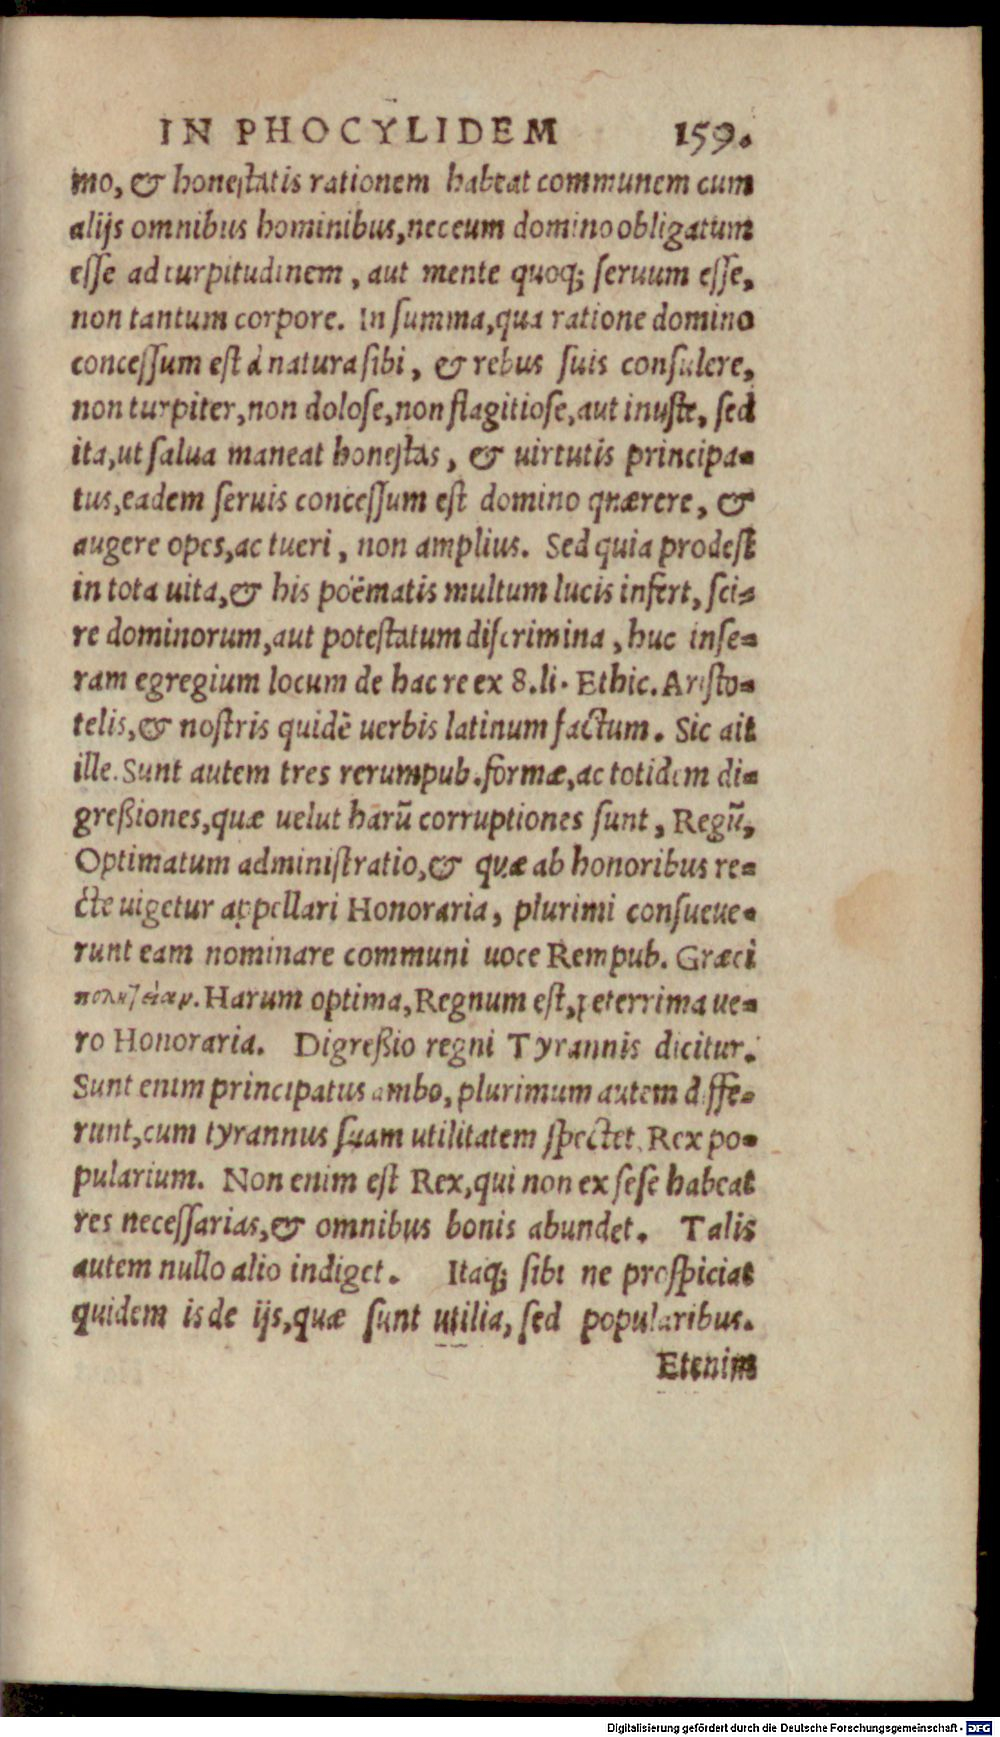 IN PHOCYLIDEM 159.
mo, & honeſtatis rationem habeat communem cum
alijs omnibus hominibus, nec eum domino obligatum
eſſe ad turpitudinem, aut mente quoq; ſeruum eſſe,
non tantum corpore. In ſumma, qua ratione domino
conceſſum eſt à natura ſibi, & rebus ſuis conſulere,
non turpiter, non doloſe, non flagitioſe, aut iniuſte, ſed
ita, ut ſalua maneat honeſtas, & uirtutis principa-
tus, eadem ſeruis conceſſum eſt domino quærere, &
augere opes, ac tueri, non amplius. Sed quia prodeſt
in tota uita, & his poëmatis multum lucis infert, ſci-
re dominorum, aut poteſtatum diſcrimina, huc inſe-
ram egregium locum de hac re ex 8. li. Ethic. Ariſto-
telis, & noſtris quidē uerbis latinum factum. Sic ait
ille. Sunt autem tres rerumpub. formæ, ac totidem di-
greßiones, quæ uelut harū corruptiones ſunt, Regū,
Optimatum adminiſtratio, & quæ ab honoribus re-
cte uigetur appellari Honoraria, plurimi conſueue-
runt eam nominare communi uoce Rempub. Græci
πολιτείαν. Harum optima, Regnum eſt, peterrima ue-
ro Honoraria. Digreßio regni Tyrannis dicitur.
Sunt enim principatus ambo, plurimum autem diffe-
runt, cum tyrannus ſuam utilitatem ſpectet, Rex po-
pularium. Non enim eſt Rex, qui non ex ſeſe habeat
res neceſſarias, & omnibus bonis abundet. Talis
autem nullo alio indiget. Itaq; ſibi ne proſpiciat
quidem is de ijs, quæ ſunt utilia, ſed popularibus.
Etenim
Digitalisierung gefördert durch die Deutsche Forschungsgemeinschaft - DFG